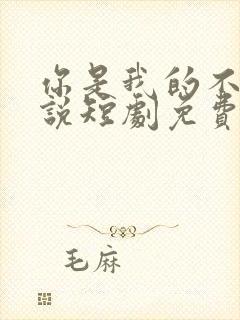 你是我的不
說短劇免費
毛麻